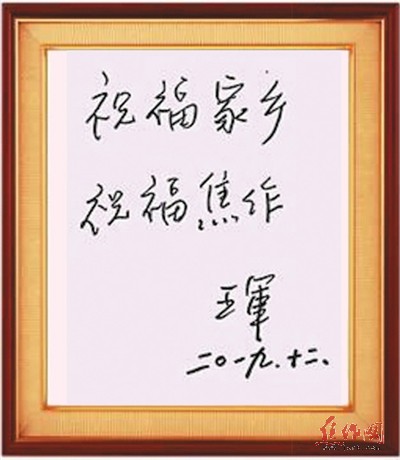 祝福家乡
祝福焦作
王軍
二〇一九.十二.
焦作网